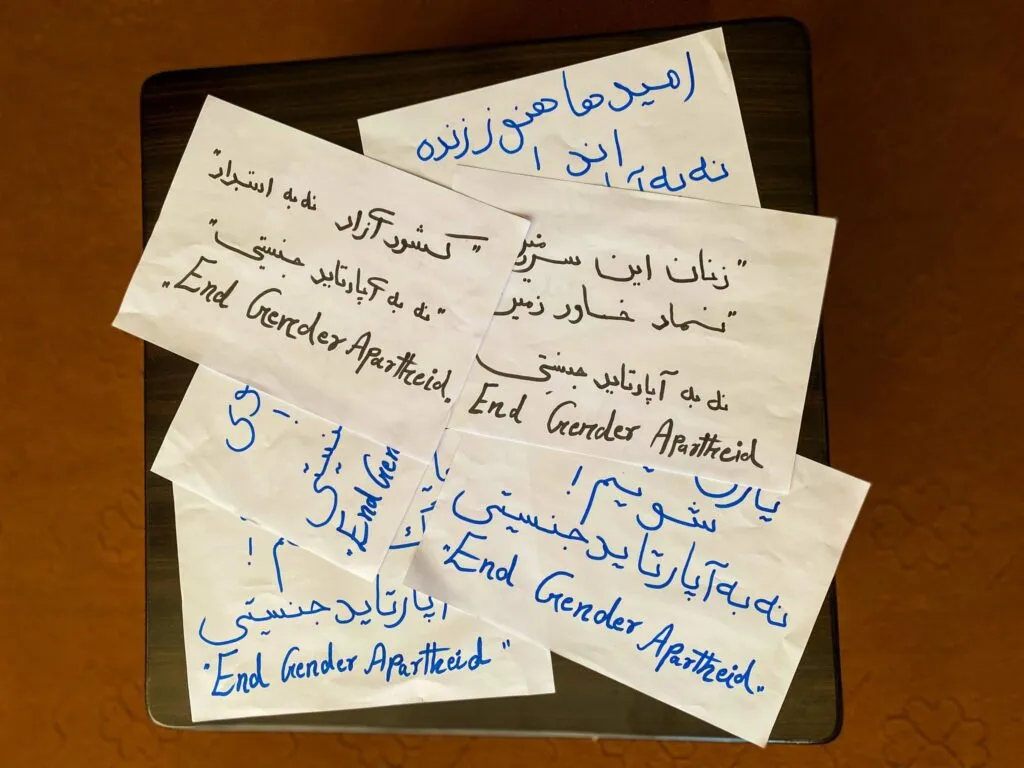 امید ها هنوز زنده
اند !
نه به
"کشور آزاد نه به استبداد"
"نه به آپارتاید جنسیتی"
"End Gender Apartheid"
"زنان این
نماد خاور زمین"
نه به آپارتاید جنسیتی
End Gender Apartheid
"End Gen
شویم !
نه به آپارتاید جنسیتی
"End Gender Apartheid"
!
آپارتاید جنسیتی
"End Gender Apartheid"